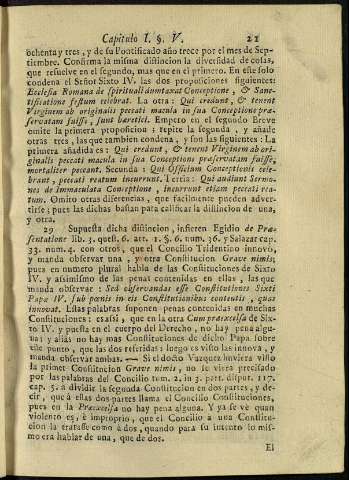 Capitulo I. §. V. 21
ochenta y tres, y de su Pontificado año trece por el mes de Sep-
tiembre. Confirma la misma distincion la diversidad de cosas,
que resuelve en el segundo, mas que en el primero. En este solo
condena el Señor Sixto IV. las dos proposiciones siguientes:
Ecclesia Romana de spirituali dumtaxat Conceptione, & Sanc-
tificatione festum celebrat. La otra: Qui credunt, & tenent
Virginem ab originalis peccati macula in sua Conceptione præ-
servatam fuisse, sunt hæretici. Empero en el segundo Breve
omite la primera proposicion; repite la segunda, y añade
otras tres, las que tambien condena, y son las siguientes: La
primera añadida es: Qui credunt, & tenent Virginem ab ori-
ginalis peccati macula in sua Conceptione præservatam fuisse,
mortaliter peccant. Secunda: Qui Officium Conceptionis cele-
brant, peccati reatum incurrunt. Tertia: Qui audiunt Sermo-
nes de Immaculata Conceptione, incurrunt etiam peccati rea-
tum. Omito otras diferencias, que facilmente pueden adver-
tirse; pues las dichas bastan para calificar la distincion de una,
y otra.
29 Supuesta dicha distincion, infieren Egidio de Præ-
sentatione lib. 3. quæst. 6. art. 1. §. 6. num. 36. y Salazar cap.
33. num. 4. con otros, que el Concilio Tridentino innovò,
y manda observar una, y otra Constitucion Grave nimis;
pues en numero plural habla de las Constituciones de Sixto
IV. y assimismo de las penas contenidas en ellas, las que
manda observar: Sed observandas esse Constitutiones Sixti
Papæ IV. sub pœnis in eis Constitutionibus contentis, quas
innovat. Estas palabras suponen penas contenidas en muchas
Constituciones: es assi, que en la otra Cum præexcelsa de Six-
to IV. y puesta en el cuerpo del Derecho, no hay pena algu-
na; y aliàs no hay mas Constituciones de dicho Papa sobre
este punto, que las dos referidas; luego es visto las innova, y
manda observar ambas. — Si el docto Vazquez huviera visto
la primer Constitucion Grave nimis, no se viera precisado
por las palabras del Concilio tom. 2. in 3. part. disput. 117.
cap. 5. à dividir la segunda Constitucion en dos partes, y de-
cir, que à ellas dos partes llama el Concilio Constituciones,
pues en la Præexcelsa no hay pena alguna. Y ya se vè quan
violento es, è improprio, que el Concilio a una Constitu-
cion la tratasse como à dos, quando para su intento lo mis-
mo era hablar de una, que de dos.
El